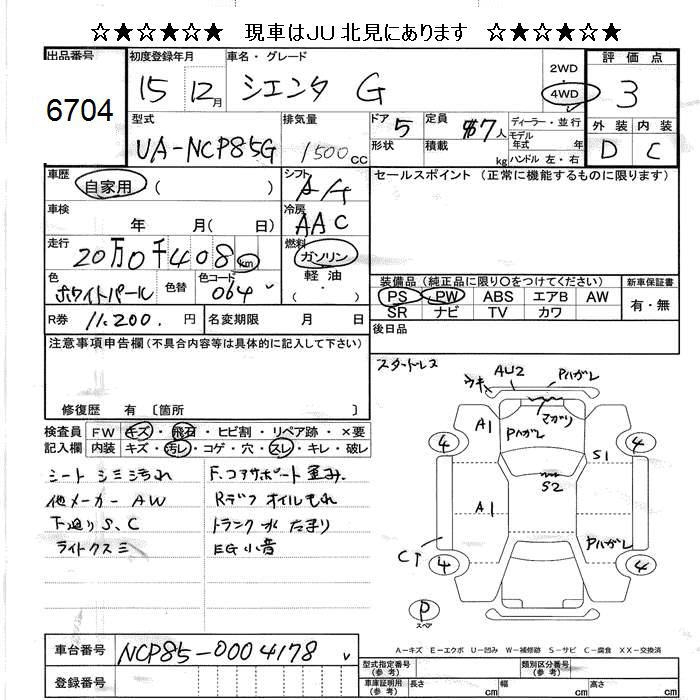 ☆★☆★☆ 現車はJU北見にあります ☆★☆★☆
出品番号 6704
初度登録年月 15 12月
車名・グレード シエンタ G
2WD 4WD
評価点 3
外装 D 内装 C
型式 UA-NCP85G
排気量 1500cc
ドア 5 形状
定員 7人 積載 kg
ディーラー・並行
モデル年式 年
ハンドル 左・右
車歴 自家用 ( )
シフト A/T
セールスポイント (正常に機能するものに限ります)
車検 年 月( 日)
冷房 AAC
走行 20万0千408km
燃料 ガソリン・軽油・( )
色 ホワイトパール 色替 色コード 064
装備品(純正品に限り○をつけてください) 新車保証書
PS PW ABS エアB AW 有・無
SR ナビ TV カワ
R券 11.200.円 名変期限 月 日
後日品
注意事項申告欄(不具合内容等は具体的に記入して下さい)
スタッドレス
修復歴 有 〔箇所 〕
検査員記入欄
FW キズ・飛石・ヒビ割・リペア跡・×要
内装 キズ・汚レ・コゲ・穴・スレ・キレ・破レ
シート シミ汚れ
F.コアサポート 歪み.
他メーカー AW
Rデフ オイルもれ
下廻り S、C
トランク 水 たまり
ライトクスミ
EG小音
ウキ AU2 Pハガレ
マガリ
A1 Pハガレ
4 4
S1
S2
A1
Pハガレ
C↑
4 4
P
スペア
A-キズ E-エクボ U-凹み W-補修跡 S-サビ C-腐食 XX-交換済
車台番号 NCP85-0004178
登録番号
型式指定番号(参考) 類別区分番号(参考)
長さ(参考) cm 幅 cm 高さ cm